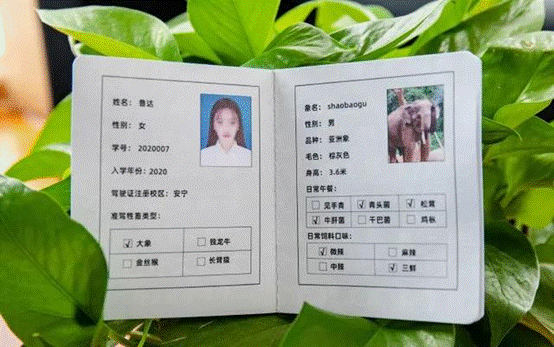 姓名：鲁达
性别：女
学号：2020007
入学年份：2020
驾驶证注册校区：安宁
准驾牲畜类型：
√ 大象 □ 独龙牛
□ 金丝猴 □ 长臂猿
象名：shaobaogu
性别：男
品种：亚洲象
毛色：棕灰色
身高：3.6米
日常午餐：
□ 见手青 √ 青头菌 √ 松茸
√ 牛肝菌 □ 干巴菌 □ 鸡枞
日常饲料口味：
√ 微辣 □ 麻辣
□ 中辣 √ 三鲜